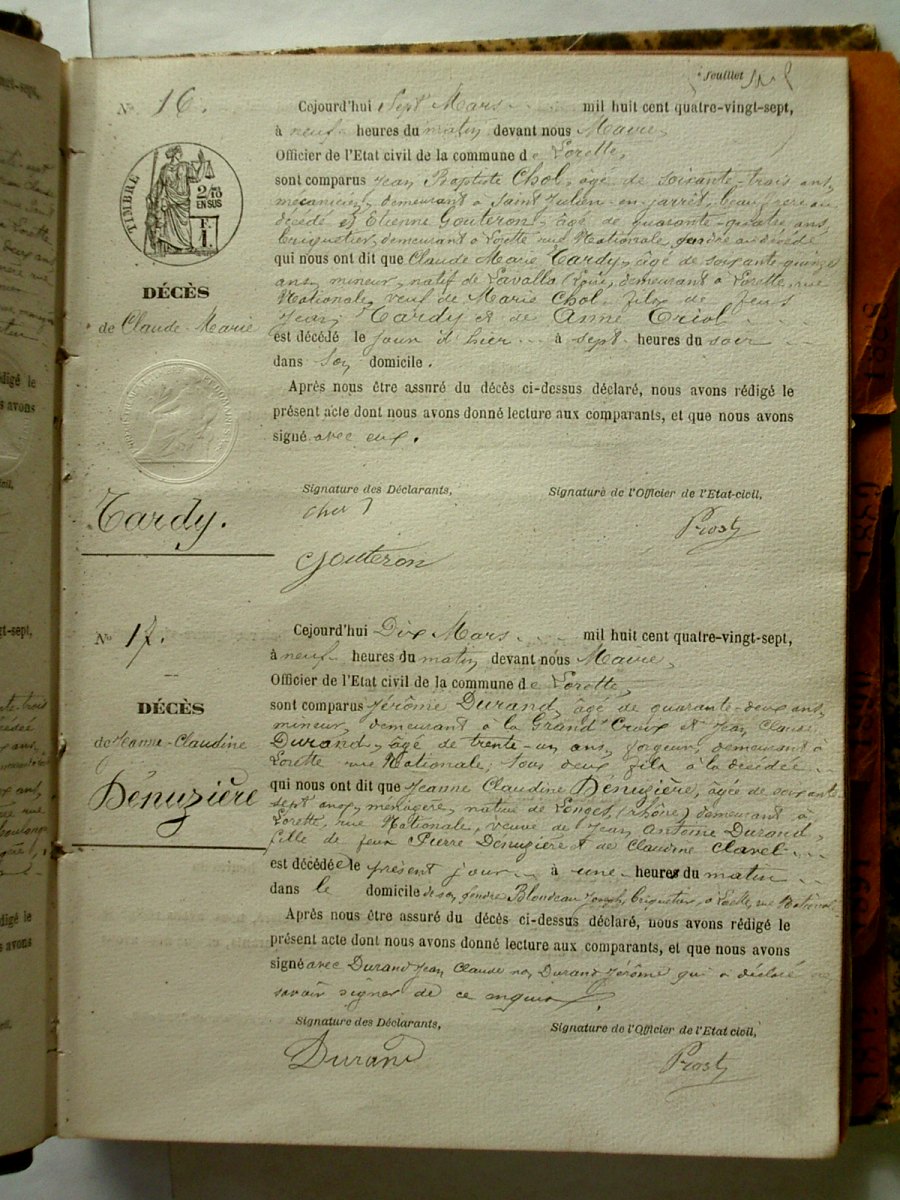 feuillet
N° 16.
Cejourd'hui Sept Mars mil huit cent quatre-vingt-sept,
à neuf heures du matin devant nous Maire,
Officier de l'Etat civil de la commune de Lorette,
sont comparus Jean Baptiste Chol, âgé de soixante-trois ans,
mécanicien, demeurant à Saint Julien-en-Jarret, beau frère au
décédé et Etienne Gouteron, âgé de quarante-quatre ans,
briquetier, demeurant à Lorette rue Nationale, gendre au décédé
qui nous ont dit que Claude Marie Tardy, âgé de soixante-quinze
ans, mineur, natif de Lavalla (Loire, demeurant à Lorette, rue
Nationale, veuf de Marie Chol, fils de feus
Jean Tardy et de Anne Oriol
est décédé le jour d'hier à sept heures du soir
dans son domicile.
Après nous être assuré du décès ci-dessus déclaré, nous avons rédigé le
présent acte dont nous avons donné lecture aux comparants, et que nous avons
signé avec eux.
TIMBRE
2/10
EN SUS
1 F.
DÉCÈS
de Claude-Marie
Tardy.
Signature des Déclarants,
Signature de l'Officier de l'Etat-civil,
Prost
Gouteron
N° 17.
DÉCÈS
de Jeanne-Claudine
Dénuzière
Cejourd'hui Dix Mars mil huit cent quatre-vingt-sept,
à neuf heures du matin devant nous Maire,
Officier de l'Etat civil de la commune de Lorette,
sont comparus Jérôme Durand, âgé de quarante-deux ans,
mineur, demeurant à la Grand' Croix et Jean Claude
Durand, âgé de trente-un ans, forgeur, demeurant à
Lorette rue Nationale, tous deux fils à la décédée
qui nous ont dit que Jeanne Claudine Dénuzière, âgée de soixante
sept ans, ménagère, native de Longes, (Rhône) demeurant à
Lorette, rue Nationale, veuve de Jean Antoine Durand,
fille de feux Pierre Dénuzière et de Claudine Clavel
est décédée le présent jour à une heure du matin
dans le domicile de son gendre Blondeau Joseph, briquetier, à Lorette, rue Nationale
Après nous être assuré du décès ci-dessus déclaré, nous avons rédigé le
présent acte dont nous avons donné lecture aux comparants, et que nous avons
signé avec Durand Jean Claude non Durand Jérôme qui a déclaré ne
savoir signer de ce enquis
Signature des Déclarants,
Signature de l'Officier de l'Etat civil,
Durand
Prost